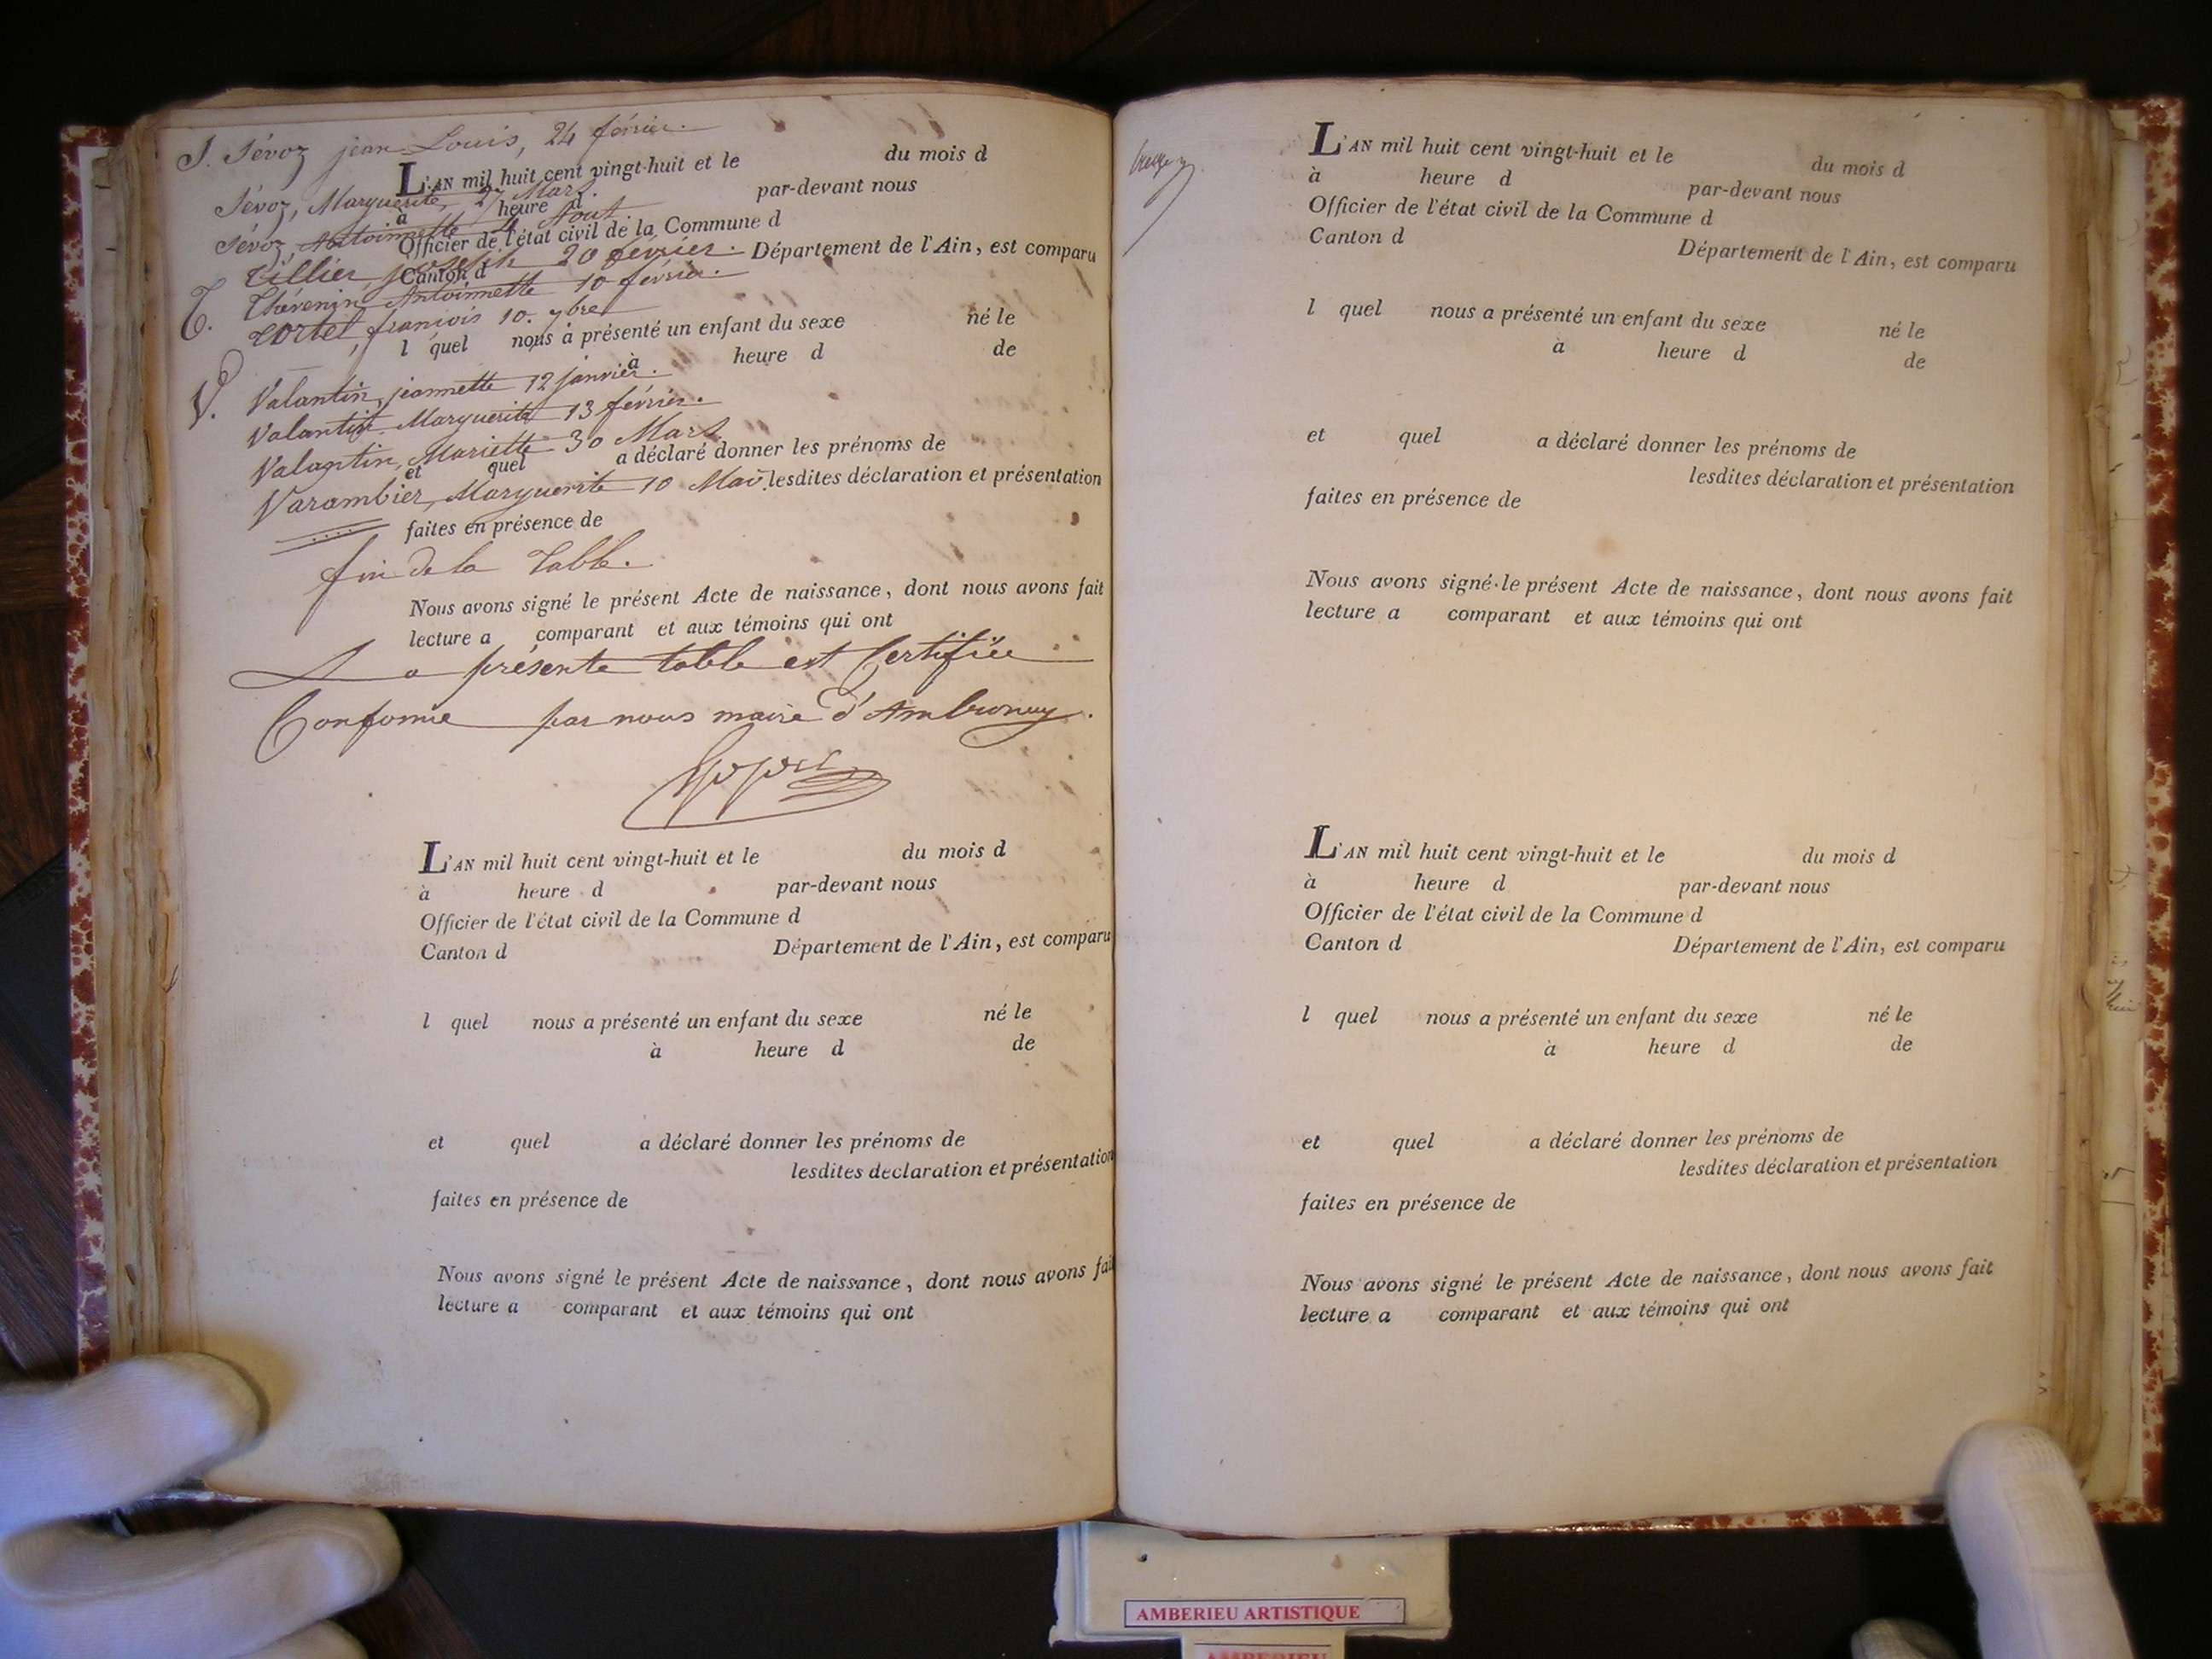 S. Sévoz jean Louis, 24 février.
L'AN mil huit cent vingt-huit et le du mois d
Sévoz, Marguerite, 27 Mars.
à heure d par-devant nous
Sévoz Antoinnette 4 Aout
Officier de l'état civil de la Commune d
Tillier, joseph 20 février.
Canton d Département de l'Ain, est comparu
T. Thévenin Antoinnette 10 février.
Tortel, francois 10. 7bre
l quel nous a présenté un enfant du sexe né le
à heure d de
V. Valantin, jeannette 12 janvier.
Valantin Marguerite 13 février.
Valantin, Mariette 30 Mars
et quel a déclaré donner les prénoms de
Varambier, Marguerite 10 Mai
lesdites déclaration et présentation
faites en présence de
fin de la Table.
Nous avons signé le présent Acte de naissance, dont nous avons fait
lecture a comparant et aux témoins qui ont
La présente table est Certifiée
Conforme par nous maire d'Ambronay.
L'AN mil huit cent vingt-huit et le du mois d
à heure d par-devant nous
Officier de l'état civil de la Commune d
Canton d Département de l'Ain, est comparu
l quel nous a présenté un enfant du sexe né le
à heure d de
et quel a déclaré donner les prénoms de
lesdites declaration et présentation
faites en présence de
Nous avons signé le présent Acte de naissance, dont nous avons fait
lecture a comparant et aux témoins qui ont
L'AN mil huit cent vingt-huit et le du mois d
à heure d par-devant nous
Officier de l'état civil de la Commune d
Canton d Département de l'Ain, est comparu
l quel nous a présenté un enfant du sexe né le
à heure d de
et quel a déclaré donner les prénoms de
lesdites déclaration et présentation
faites en présence de
Nous avons signé le présent Acte de naissance, dont nous avons fait
lecture a comparant et aux témoins qui ont
L'AN mil huit cent vingt-huit et le du mois d
à heure d par-devant nous
Officier de l'état civil de la Commune d
Canton d Département de l'Ain, est comparu
l quel nous a présenté un enfant du sexe né le
à heure d de
et quel a déclaré donner les prénoms de
lesdites déclaration et présentation
faites en présence de
Nous avons signé le présent Acte de naissance, dont nous avons fait
lecture a comparant et aux témoins qui ont
AMBERIEU ARTISTIQUE
AMBERIEU